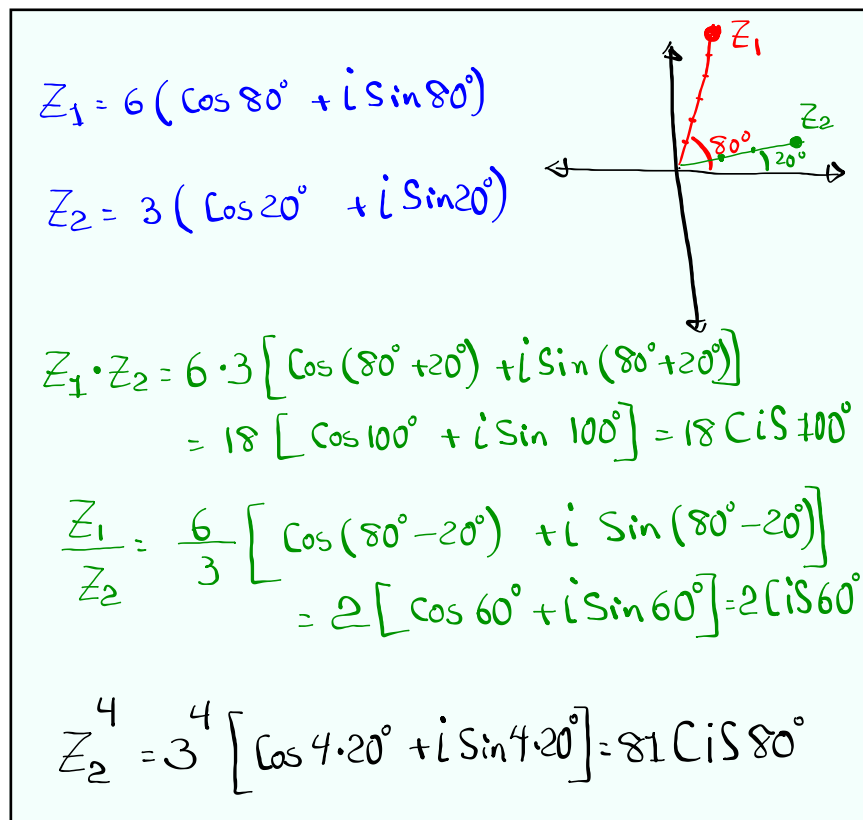 Z₁ = 6 (Cos 80° + i Sin 80°)
Z₂ = 3 (Cos 20° + i Sin 20°)
Z₁
Z₂
80°
20°
Z₁ · Z₂ = 6 · 3 [Cos (80° + 20°) + i Sin (80° + 20°)]
= 18 [Cos 100° + i Sin 100°] = 18 CiS 100°
Z₁/Z₂ = 6/3 [Cos (80° - 20°) + i Sin (80° - 20°)]
= 2 [Cos 60° + i Sin 60°] = 2 CiS 60°
Z₂⁴ = 3⁴ [Cos 4·20° + i Sin 4·20°] = 81 CiS 80°